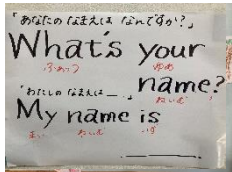 「あなたの なまえは なんですか?」
What's your
ふぁっつ ゆあ
name?
ねいむ?
「わたしの なまえは __.」
My name is
まい ねいむ いず